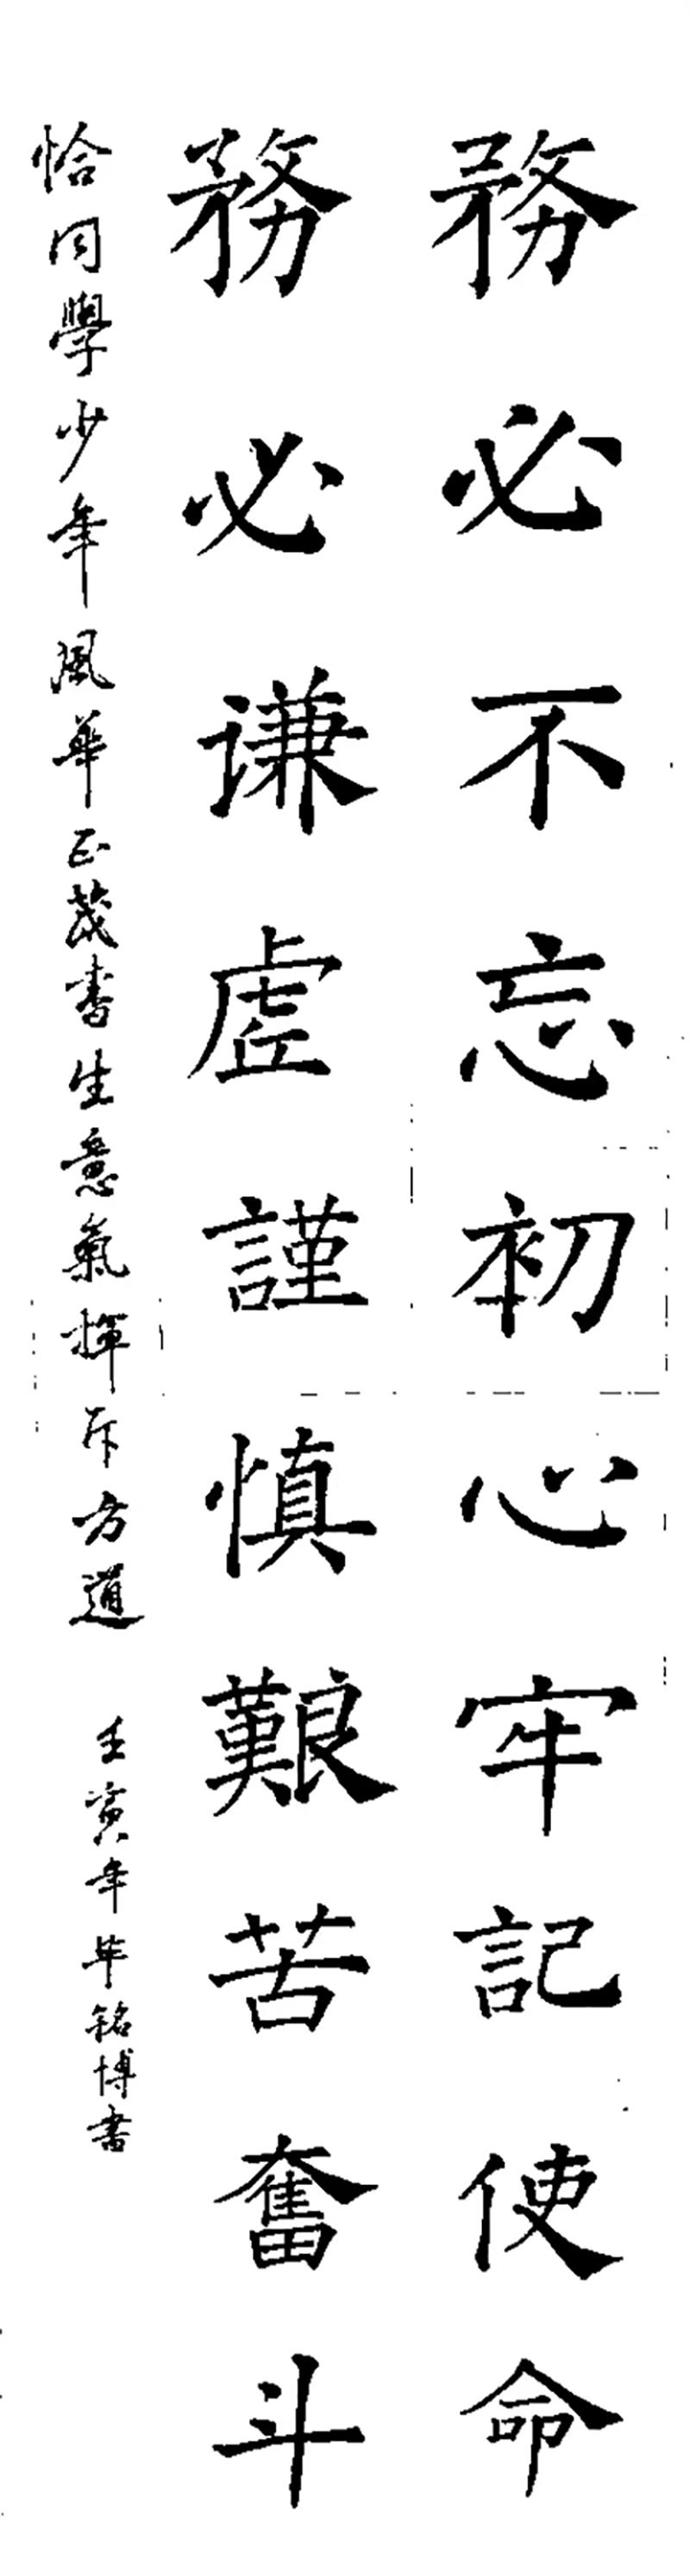 務必不忘初心牢記使命
務必谦虛謹慎艱苦奮斗
恰同學少年風華正茂書生意氣揮斥方遒
壬寅年毕銘博書